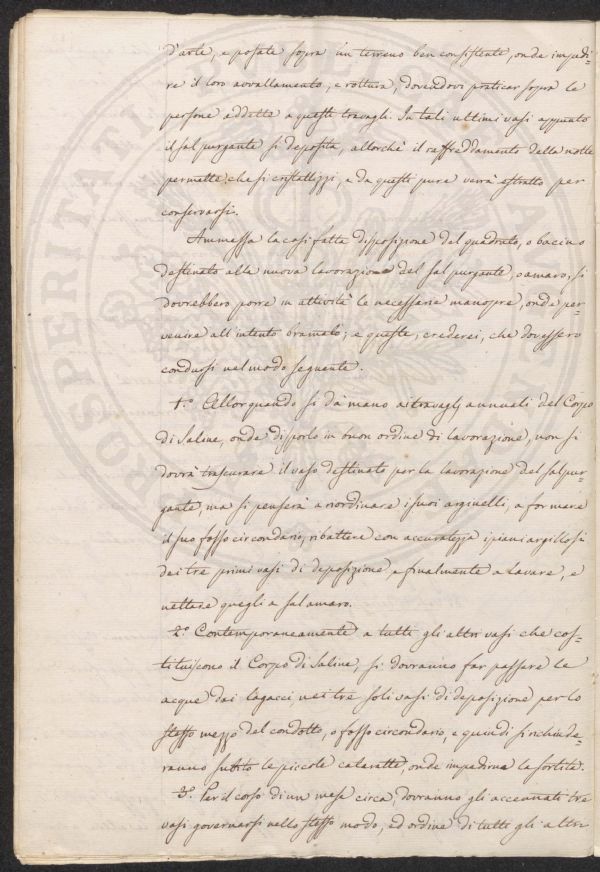 d'arte, e posate sopra un terreno ben consistente, onde impedi-
re il loro avvallamento, e rottura, dovendovi praticar sopra le
persone addette a questi travagli. In tali ultimi vasi appunto
il sal purgante si deposita, allorchè il raffreddamento della notte
permette che si cristallizzi, e da questi pure verrà estratto per
conservarsi.
Ammessa la così fatta disposizione del quadrato, o bacino
destinato alla nuova lavorazione del sal purgante, o amaro; si
dovrebbero porre in attività le necessarie manopre, onde per-
venire all'intento bramato; e queste, crederei, che dovessero
condursi nel modo seguente.
1.º Allorquando si dà mano ai travaglj annuali del Corpo
di Saline, onde disporlo in buon ordine di lavorazione, non si
dovrà trascurare il vaso destinato per la lavorazione del sal pur-
gante, ma si penserà a riordinare i suoi arginelli, a formare
il suo fosso circondario, ribattere con accuratezza i piani argillosi
dei tre primi vasi di deposizione, e finalmente a lavare, e
nettare quegli a sal amaro.
2.º Contemporaneamente a tutti gli altri vasi che cos-
tituiscono il Corpo di Saline, si dovranno far passare le
acque dai lagacci nei tre soli vasi di deposizione per lo
stesso mezzo del condotto, o fosso circondario, e quindi si richiude-
ranno subito le piccole cataratte, onde impedirne la sortita.
3.º Per il corso di un mese circa, dovranno gli accennati tre
vasi governarsi nello stesso modo, ed ordine di tutti gli altri
PROSPERITATI